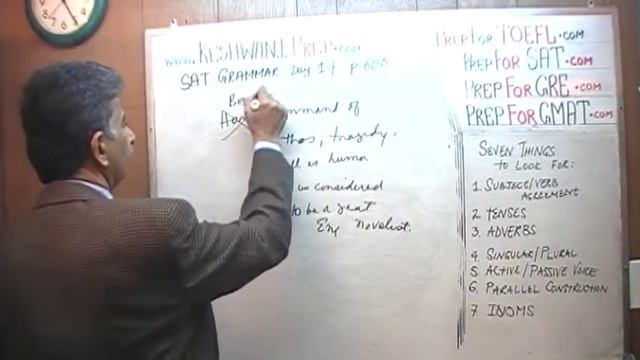 www.KESHWANIPREP.com
SAT GRAMMAR Day 17 p-600
mmand of
thos, tragedy,
ll as human
is considered
to be a great
Eng Novelist.
PREPFOR TOEFL.COM
PREPFOR SAT.COM
PREPFOR GRE.COM
PREPFOR GMAT.COM
SEVEN THINGS
TO LOOK FOR:
1. SUBJECT/VERB
AGREEMENT
2 TENSES
3. ADVERBS
4. SINGULAR/PLURAL
5 ACTIVE/PASSIVE VOICE
6. PARALLEL CONSTRUCTION
7 IDIOMS